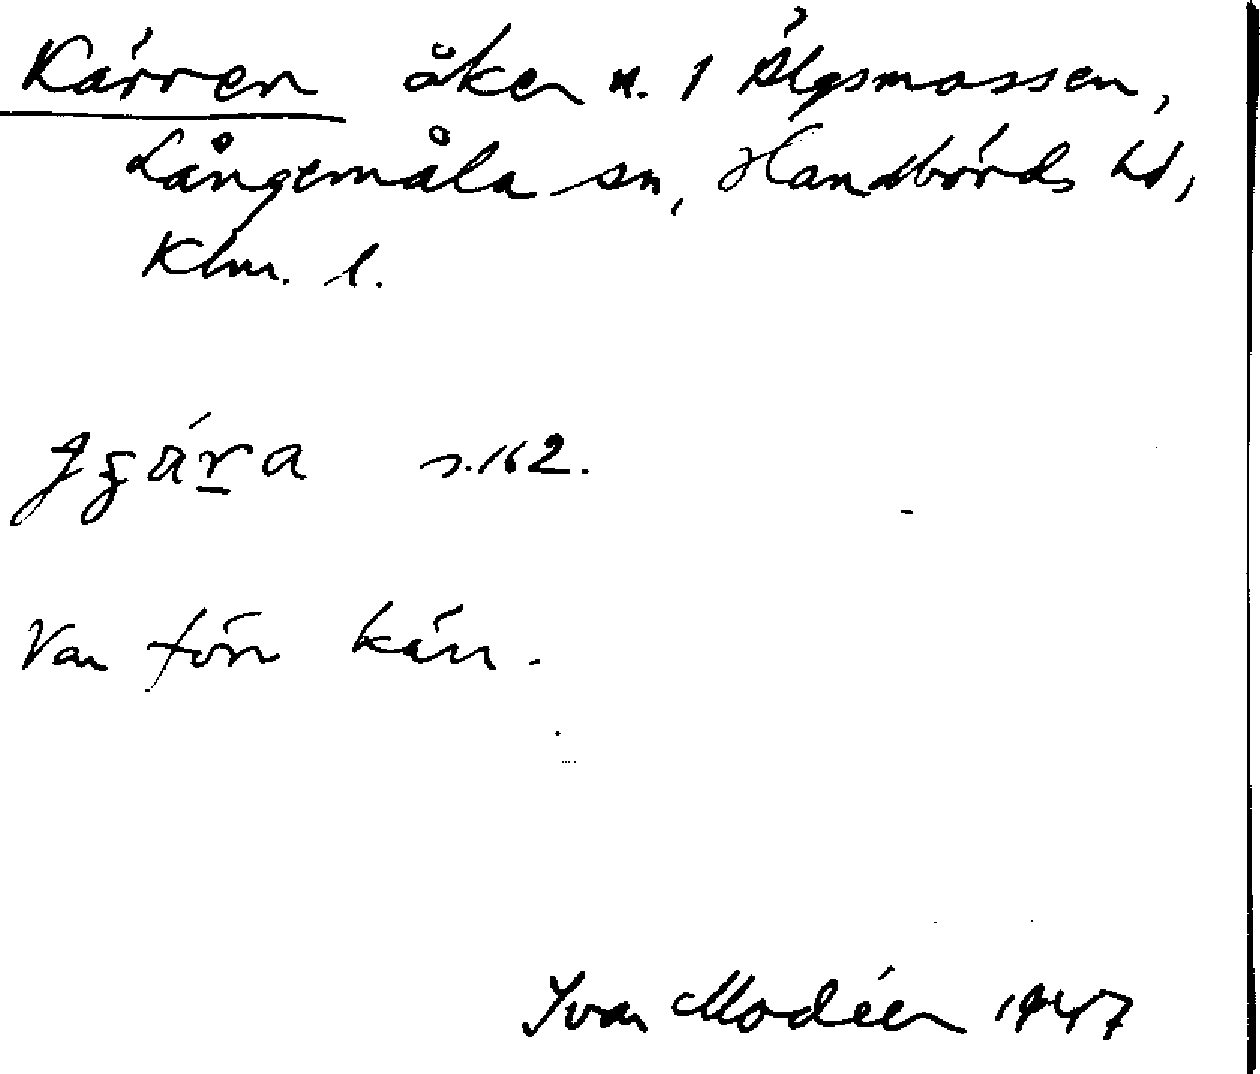 Kärren åker n. 1 Älgsmossen,
Långemåla sn, Handbörds hd,
Klm. l.
s. 162.
Var förr kärr.
Ivar Modéer 1947